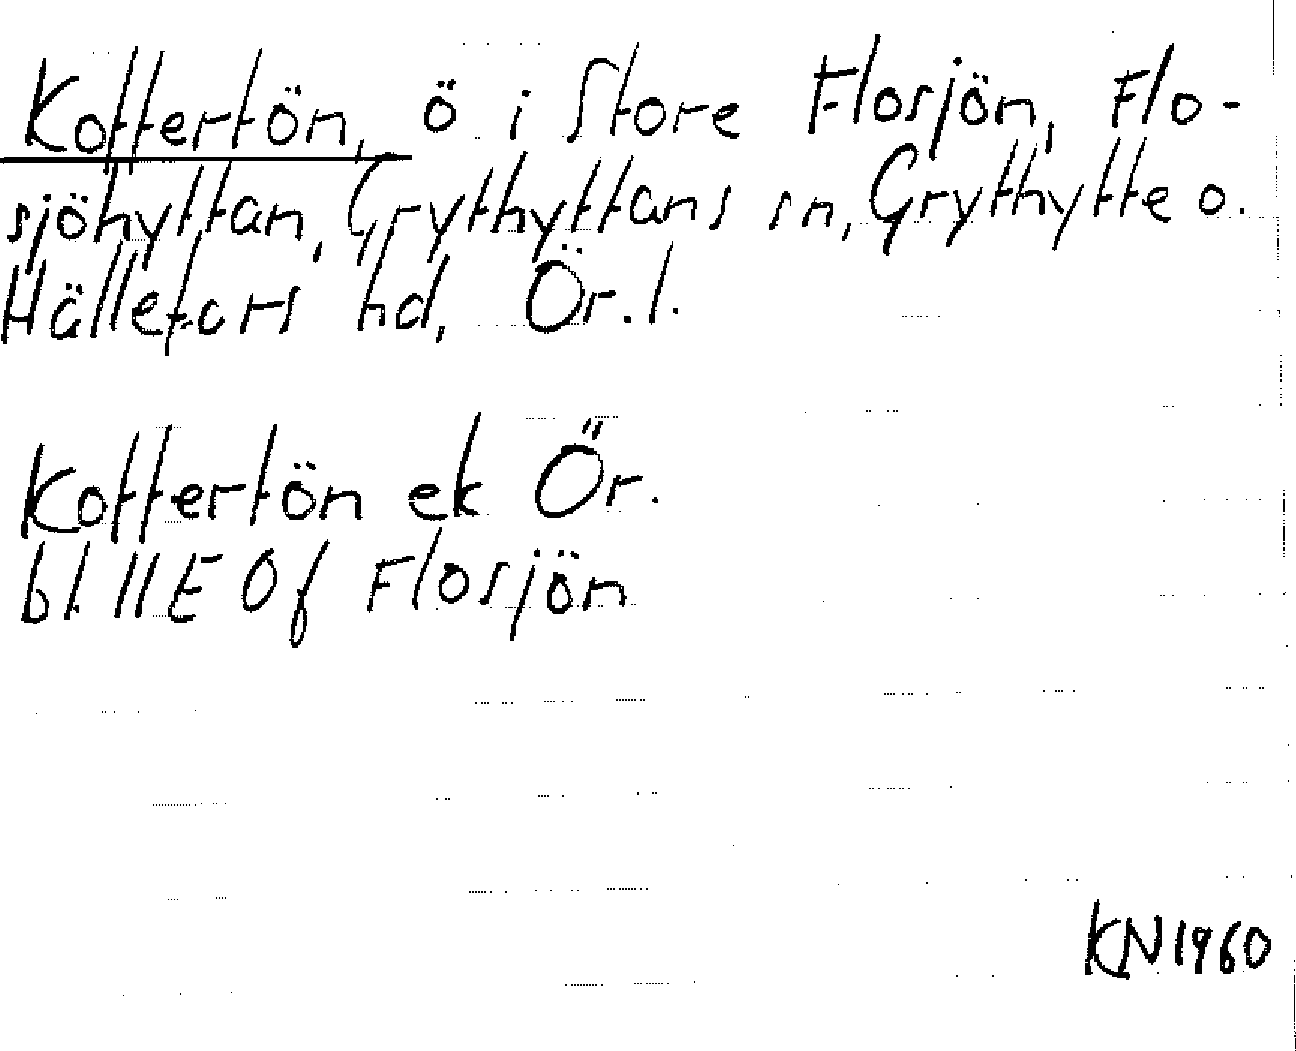 Koffertön, ö i Store Flosjön, Flo-
sjöhyttan, Grythyttans sn, Grythytte o.
Hällefors hd, Ör. l.
Koffertön ek Ör.
bl 11E Of Flosjön
KN 1960